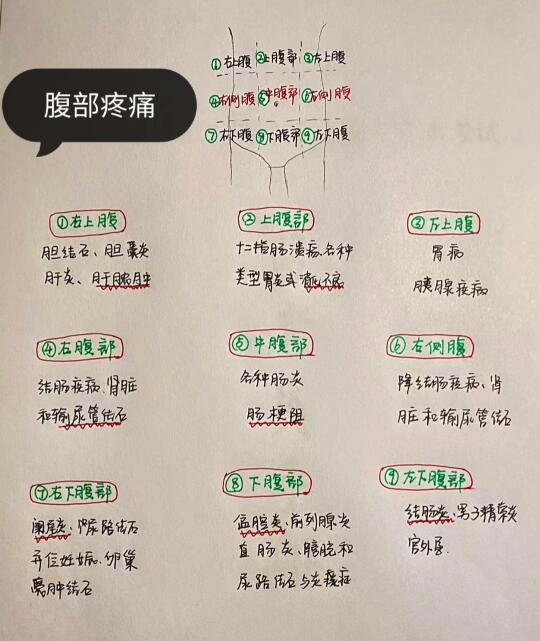 腹部疼痛
①右上腹 ②上腹部 ③左上腹
④右侧腹 ⑤中腹部 ⑥右侧腹
⑦右下腹 ⑧下腹部 ⑨左下腹
①右上腹
胆结石、胆囊炎
肝炎、肝脓肿
②上腹部
十二指肠溃疡、各种
类型胃炎或消化不良
③左上腹
胃病
胰腺疾病
④右腹部
结肠疾病、肾脏
和输尿管结石
⑤中腹部
各种肠炎
肠梗阻
⑥右侧腹
降结肠疾病、肾
脏和输尿管结石
⑦右下腹部
阑尾炎、尿路结石
异位妊娠、卵巢
囊肿结石
⑧下腹部
盆腔炎、前列腺炎
直肠炎、膀胱和
尿路结石与炎症
⑨左下腹部
结肠炎、男子精索炎
宫外孕